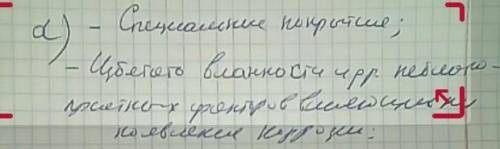 α) - Специальные покрытие;
- Избегать влажности и др. неблаго-
приятных факторов влияющих на
появление коррозии.